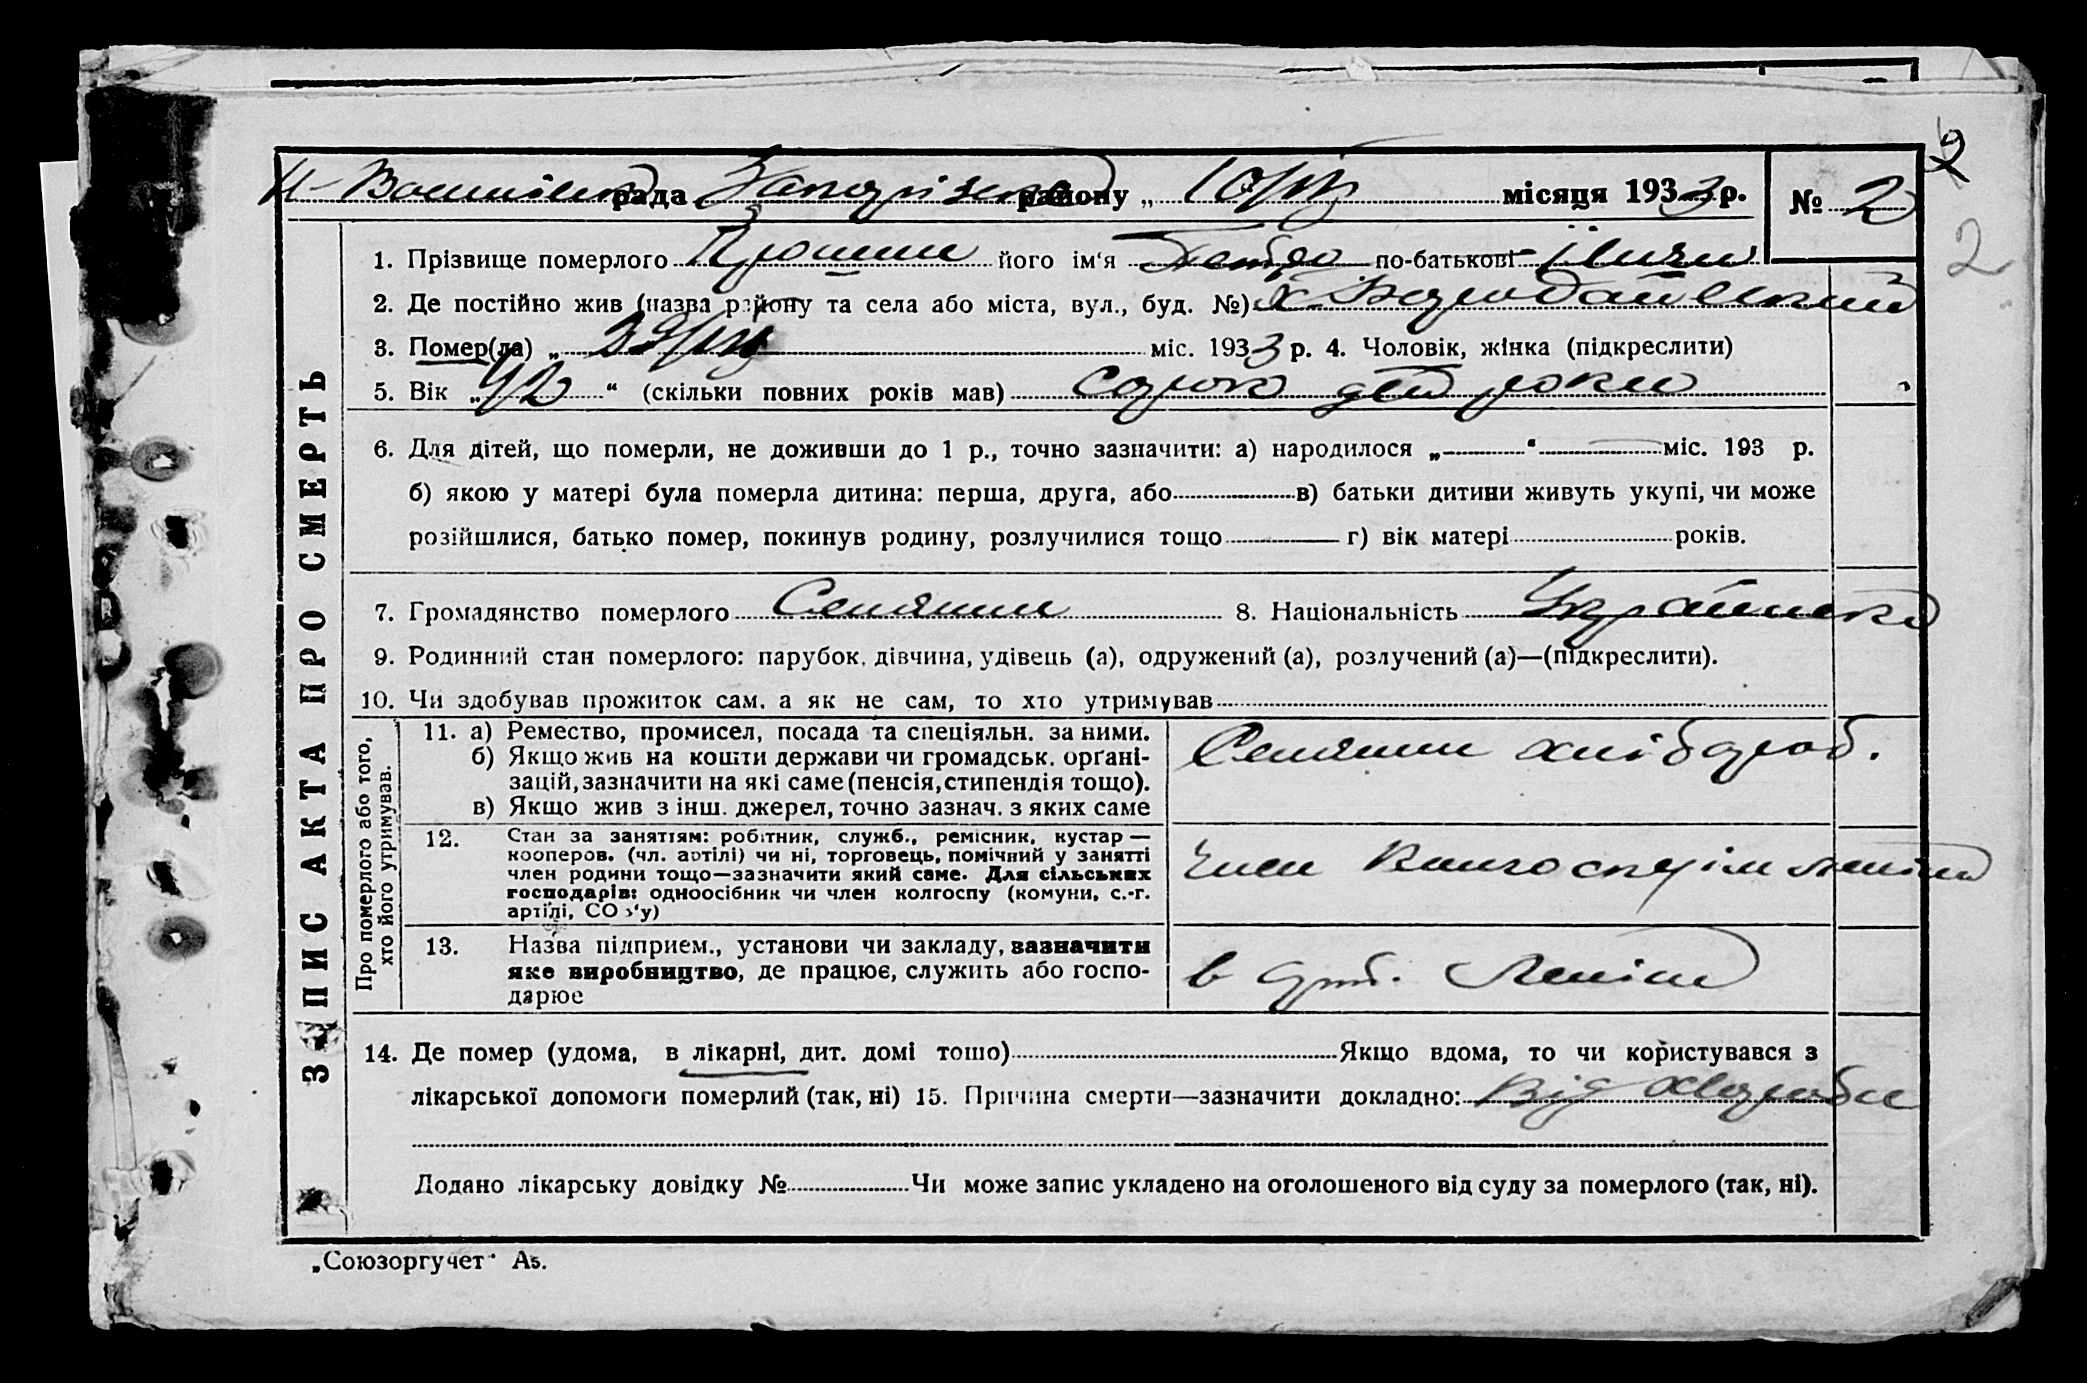 рада Запорізько району „ 10/IV місяця 1933 р. № 2
2
ЗАПИС АКТА ПРО СМЕРТЬ
1. Прізвище померлого його ім'я Петро по-батькові
2. Де постійно жив (назва району та села або міста, вул., буд. №) х.
3. Помер(ла) „ міс. 1933 р. 4. Чоловік, жінка (підкреслити)
5. Вік „42“ (скільки повних років мав) сорок два роки
6. Для дітей, що померли, не доживши до 1 р., точно зазначити: а) народилося „ “ міс. 193 р.
б) якою у матері була померла дитина: перша, друга, або в) батьки дитини живуть укупі, чи може
розійшлися, батько помер, покинув родину, розлучилися тощо г) вік матері років.
7. Громадянство померлого Селянин 8. Національність Українець
9. Родинний стан померлого: парубок, дівчина, удівець (а), одружений (а), розлучений (а)—(підкреслити).
10. Чи здобував прожиток сам, а як не сам, то хто утримував
Про померлого або того,
хто його утримував.
11. а) Ремество, промисел, посада та спеціяльн. за ними.
б) Якщо жив на кошти держави чи громадськ. орґані-
зацій, зазначити на які саме (пенсія, стипендія тощо).
в) Якщо жив з інш. джерел, точно зазнач. з яких саме
Селянин хлібороб.
12. Стан за заняттям: робітник, служб., ремісник, кустар —
кооперов. (чл. артілі) чи ні, торговець, помічний у занятті
член родини тощо—зазначити який саме. Для сільських
господарів: одноосібник чи член колгоспу (комуни, с.-г.
артілі, СОЗ'у)
член Колгоспу ім Леніна
13. Назва підприєм., установи чи закладу, зазначити
яке виробництво, де працює, служить або госпо-
дарює
в арт. Леніна
14. Де помер (удома, в лікарні, дит. домі тощо) Якщо вдома, то чи користувався з
лікарської допомоги померлий (так, ні) 15. Причина смерти—зазначити докладно: Від хвороби
Додано лікарську довідку № Чи може запис укладено на оголошеного від суду за померлого (так, ні).
„Союзоргучет“ А5.